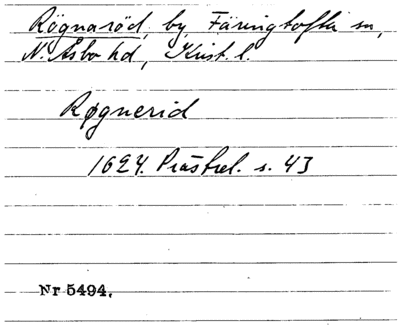 Rögnaröd, by, Färingtofta sn,
N. Åsbo hd, Krist. l.
Røgnerid
1624. Prästrel. s. 43
Nr 5494.